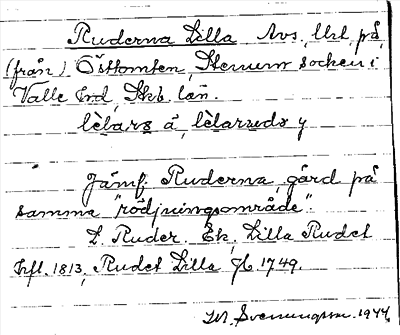 Ruderna Lilla Avs. lht. på
(från) Östtomten, Stenum socken i
Valle hd, Skb. län.
lèbars å, lèbarsuds y
Jämf. Ruderna, gård på
samma "rödjningsområde".
L. Ruder. Ek, Lilla Rudet
hfl. 1813, Rudet Lilla Jb. 1749.
Svenungsson. 1944